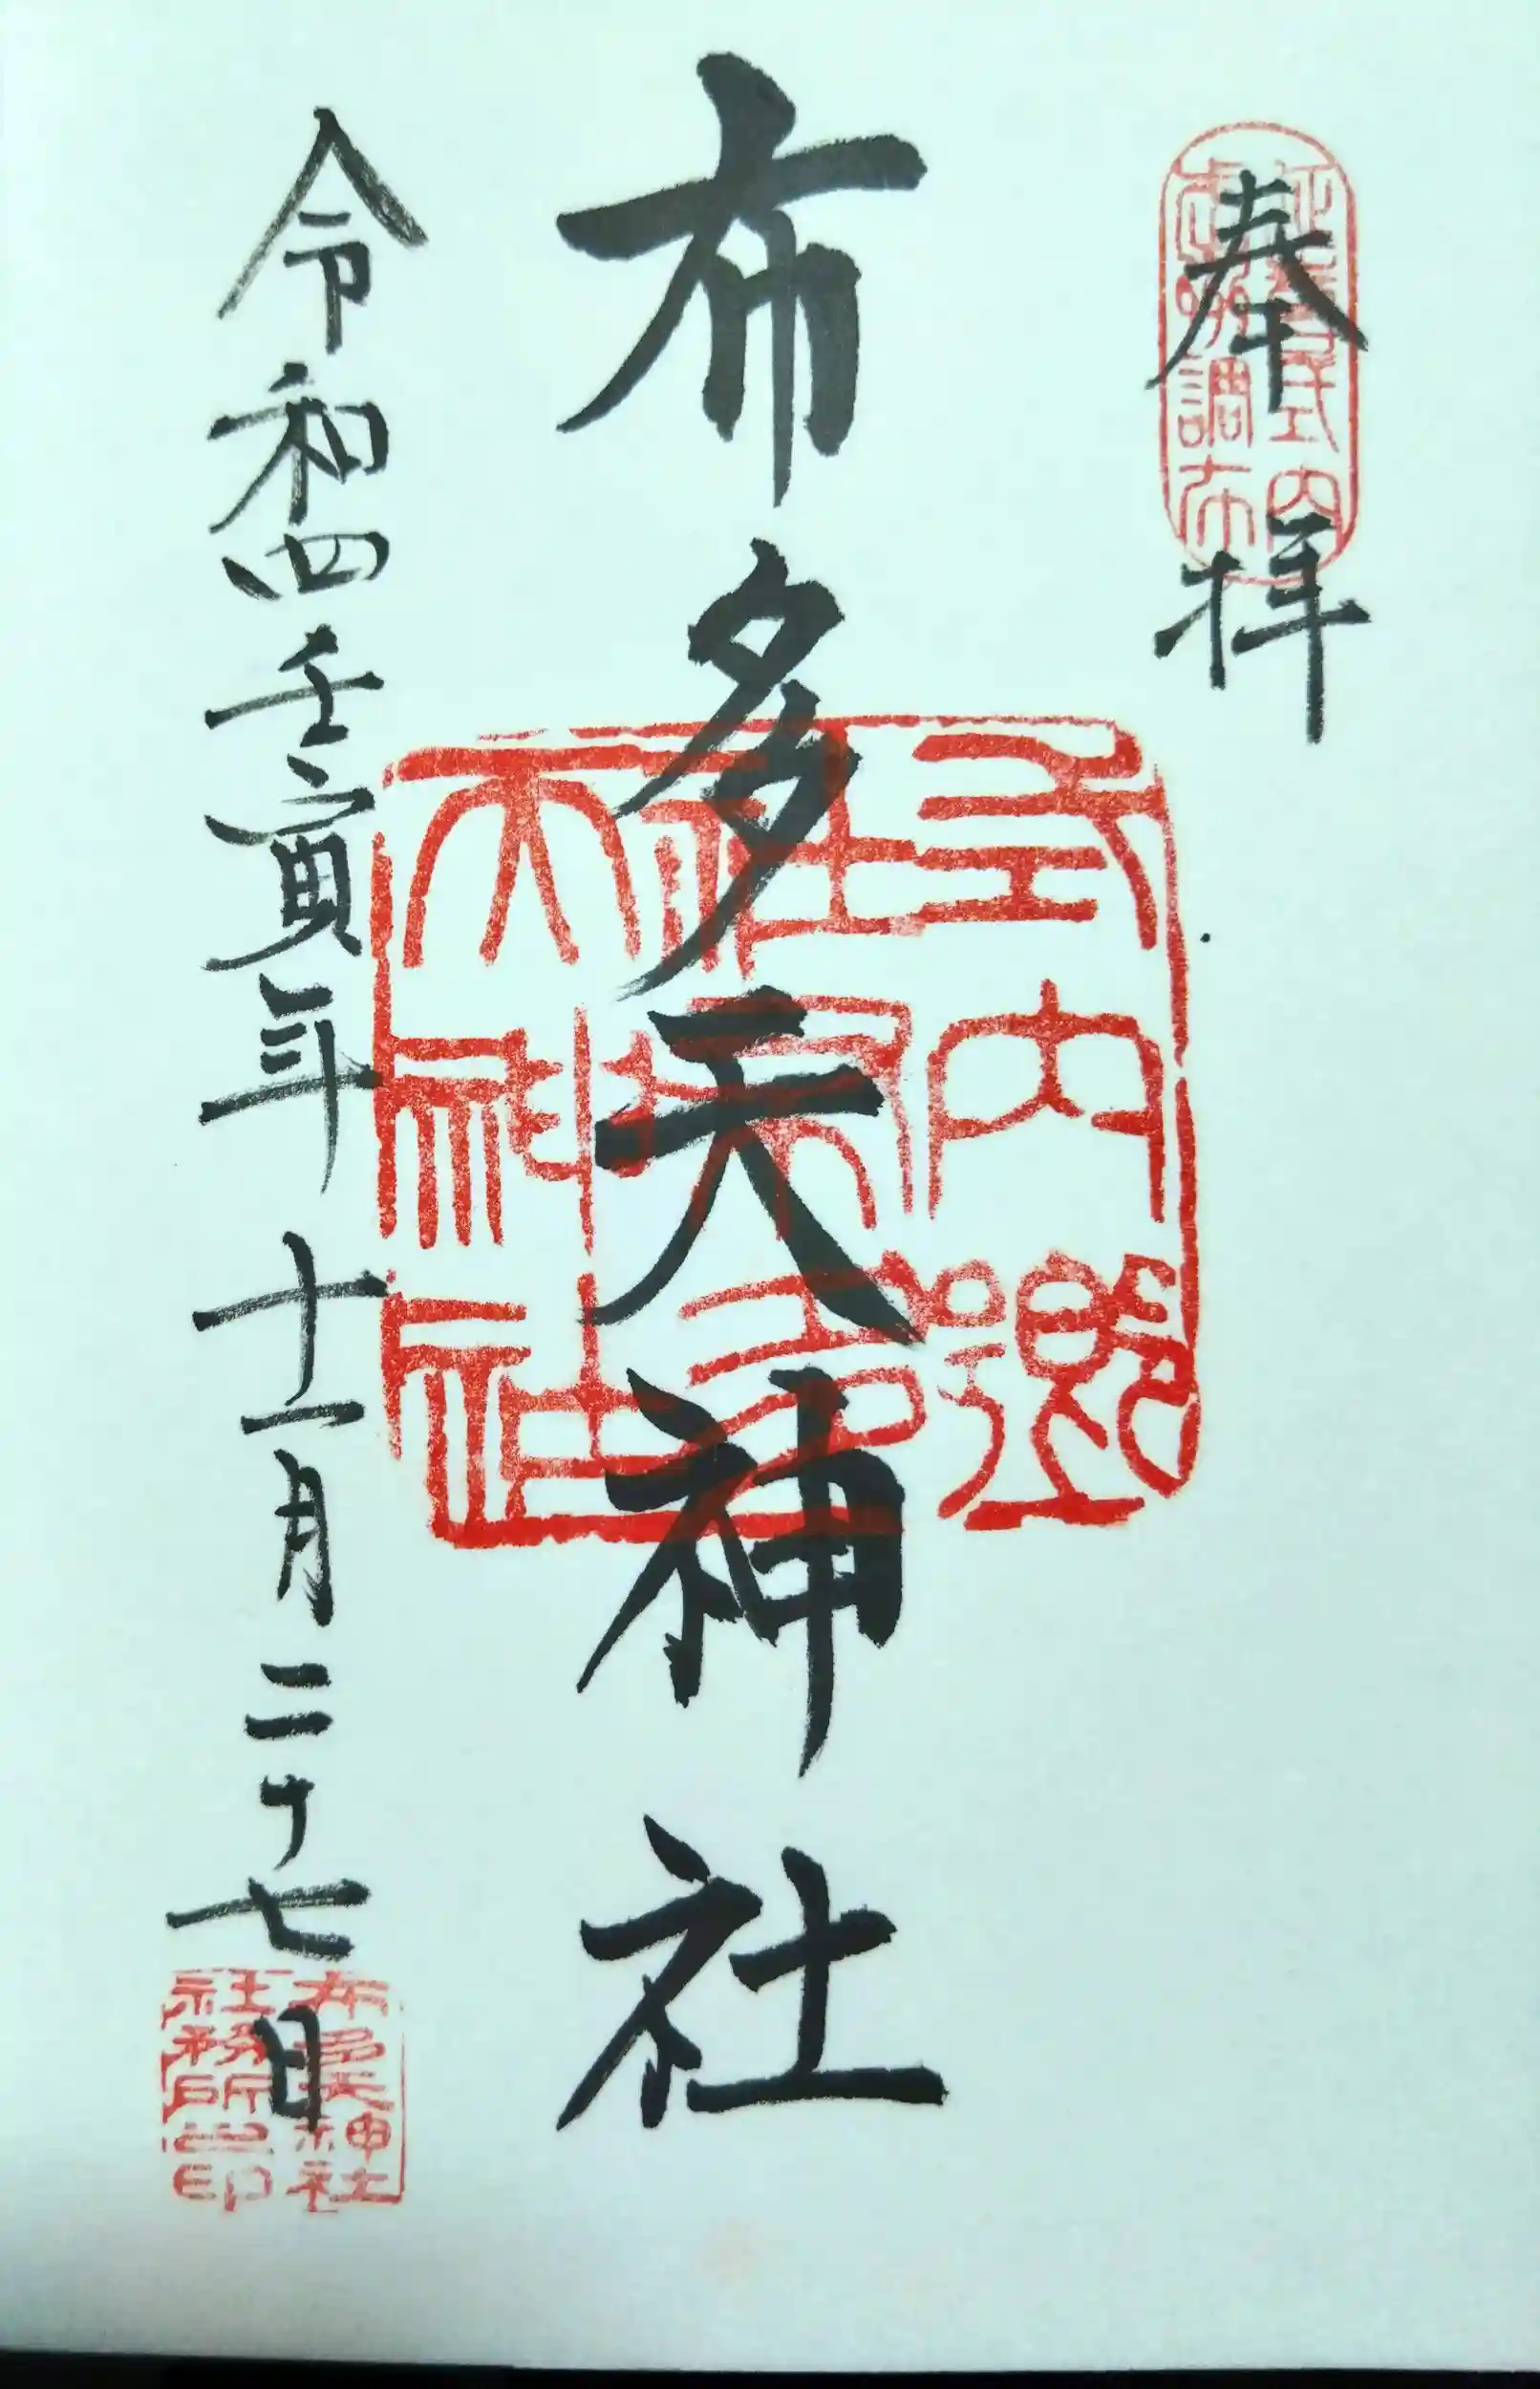 奉拝
延喜式内
武州調布
布多天神社
式内郷
社布多
天神社
令和四壬寅年十一月二十七日
布多天神社
社務所之印